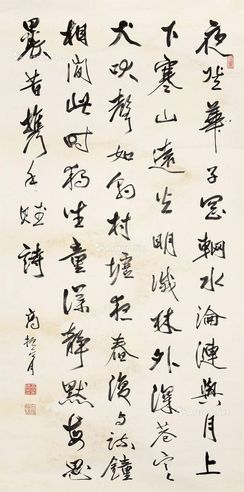 夜登華子岡輞水淪漣與月上
下寒山遠火明滅林外深巷寒
犬吠聲如豹村墟夜舂復与疏鐘
相間此時獨坐童僕靜默每思
曩昔攜手賦詩